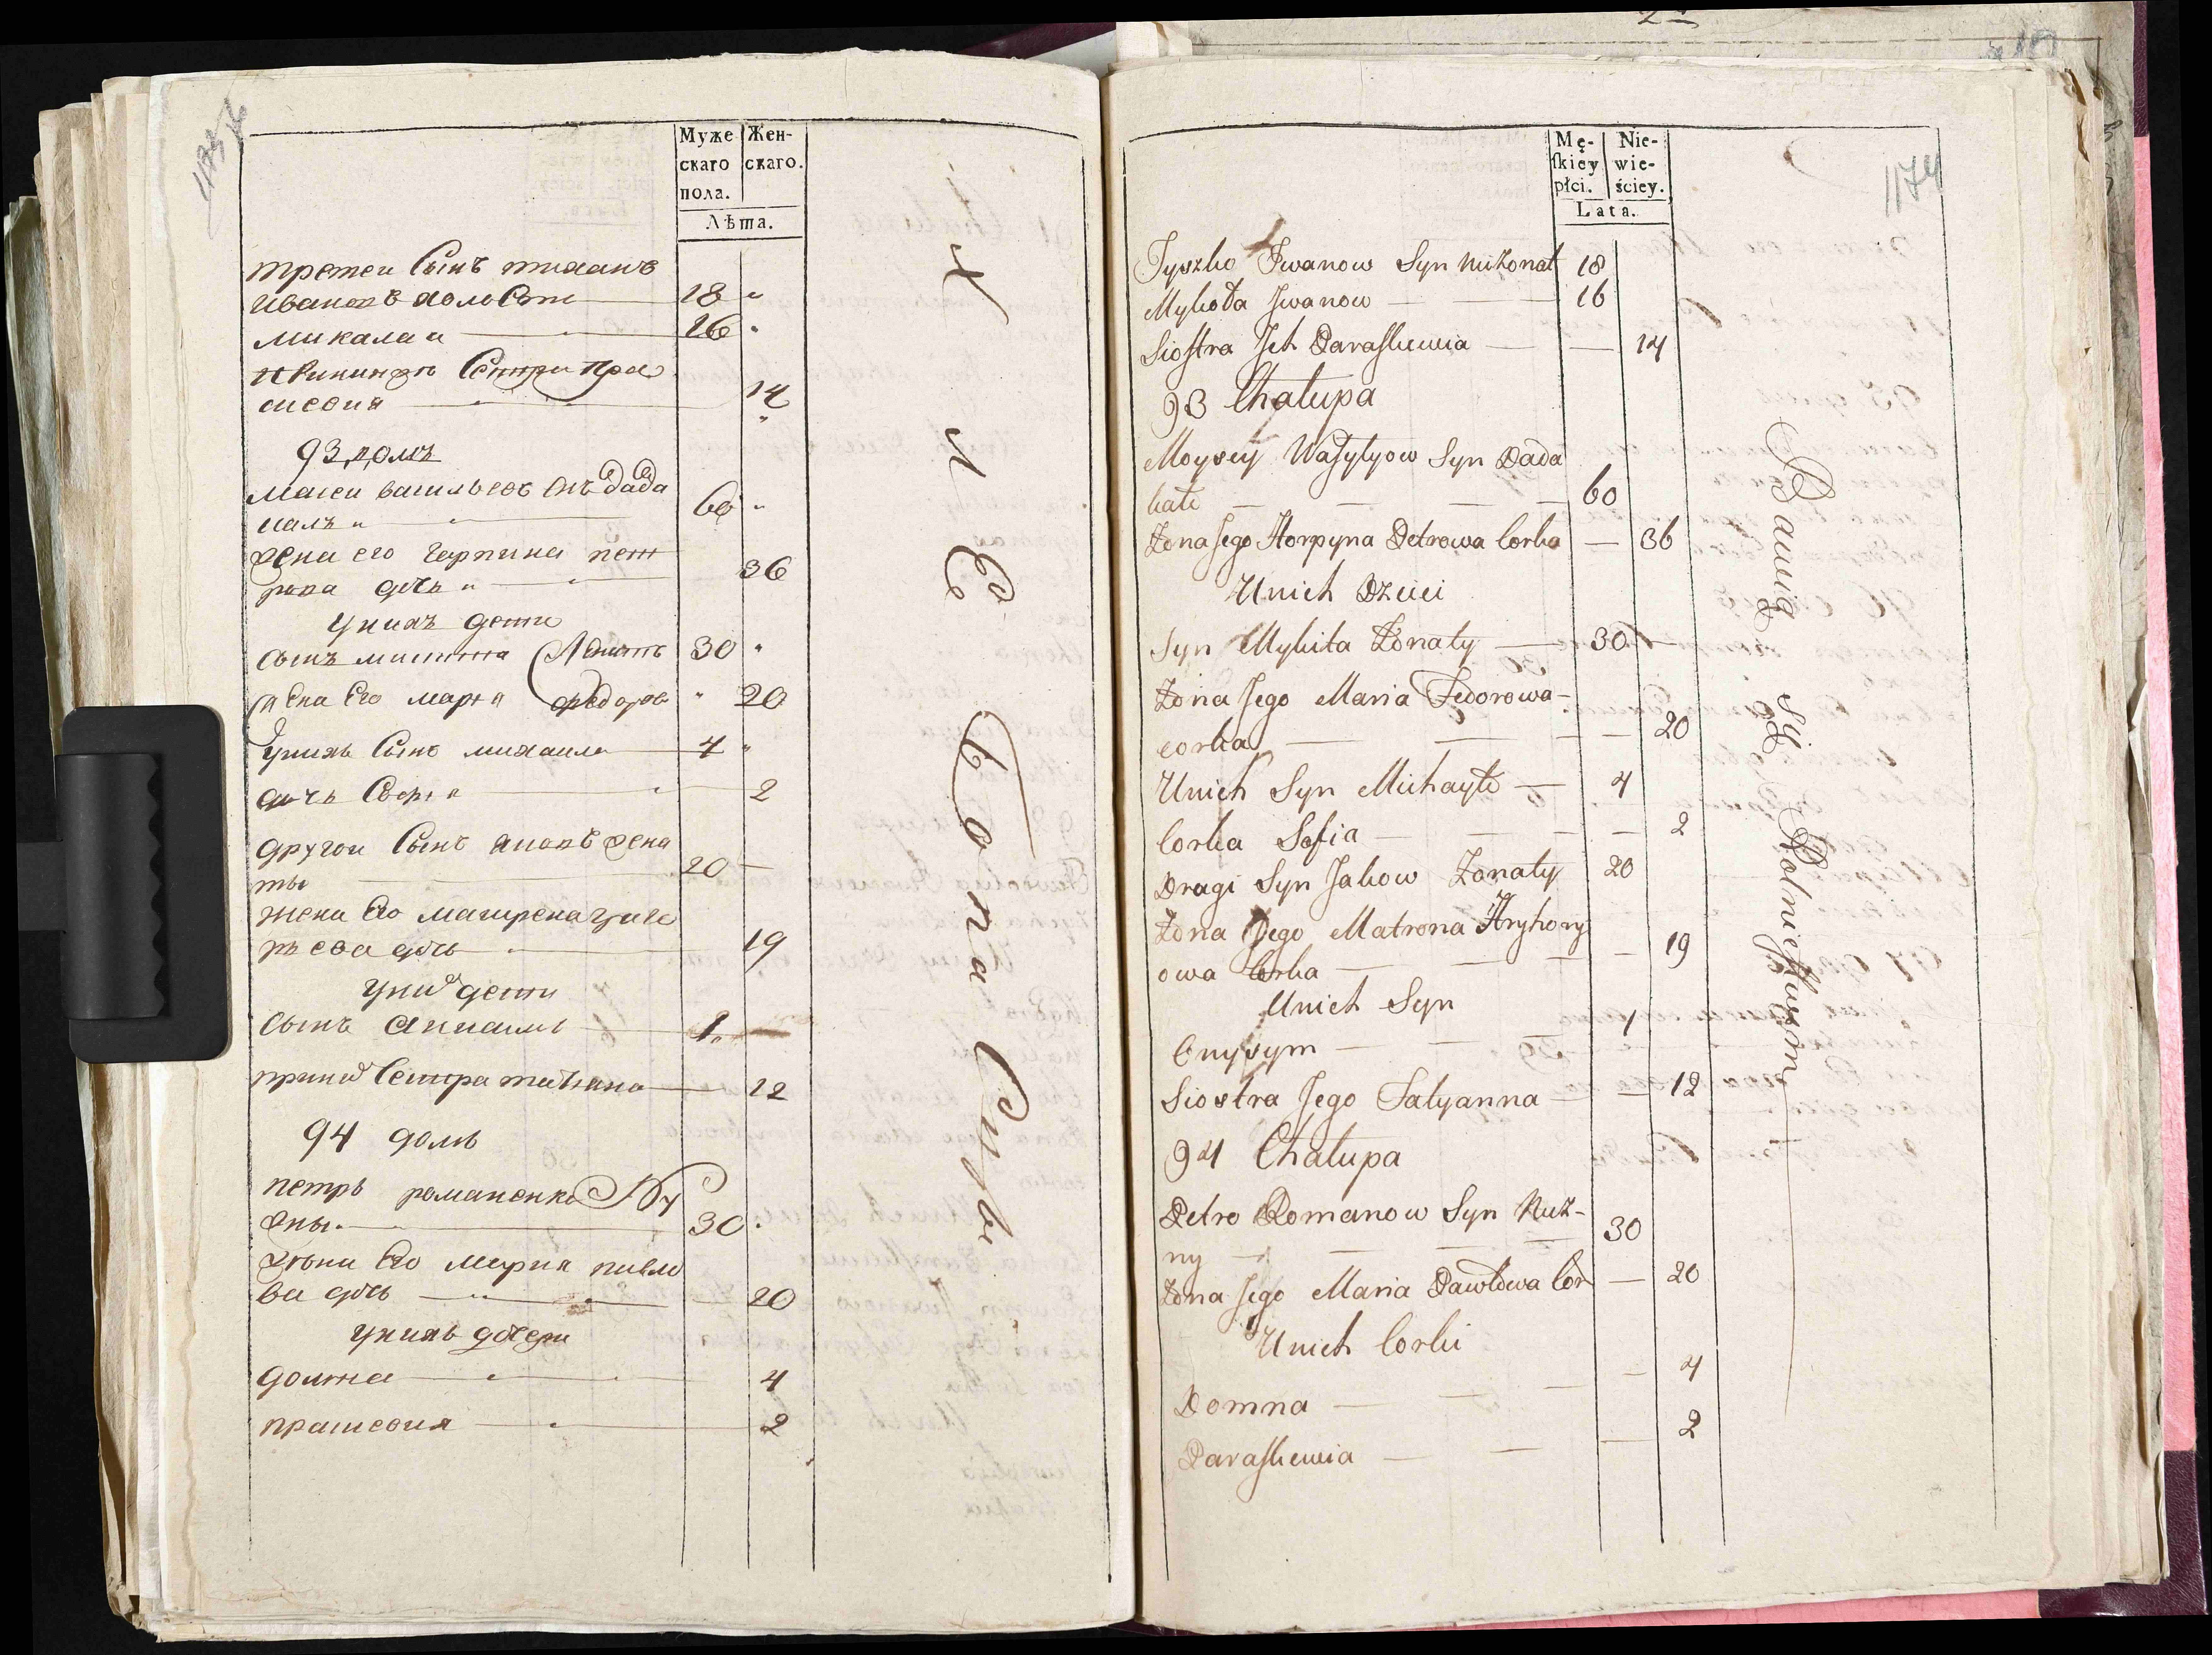 1173
Муже
скаго
пола.
Жен-
скаго.
Лѣта.
третеи Сынъ тиханъ
Ивановъ холости 18
микалаи 16
Сестра Пра
сковия 14
93 домъ
Масеи васильевъ Снъ Дада
калъ 60
жена его гарпина пет
рова дочь 36
У нихъ дети
Сынъ микита женатъ 30
жена Его мария федоров 20
У нихъ Сынъ михаила 4
дочь София 2
другои Сынъ яковъ жена
ты 20
жена Его матрена григо
рьева дочь 19
У них дети
Сынъ анисимъ 1
при них Сестра татиана 12
94 домъ
петръ романенко Ну
жны 30
жена Его мария павло
ва дочь 20
У нихъ дочери
домна 4
прасковия 2
1174
Mę-
ſkiey
płci.
Nie-
wie-
ściey.
Lata.
Tyszko Iwanow Syn niżonat 18
Mykoła Jwanow 16
Sioſtra Jch Paraſkiewia 14
93 Chałupa
Moysey Wasylyow Syn Dada
kało 60
Zona Jego Horpyna Petrowa Corka 36
U nich Dzieci
Syn Mykita Żonaty 30
Żona Jego Maria Fedorowa
corka 20
U nich Syn Michayło 4
Corka Sofia 2
Drugi Syn Jakow Żonaty 20
Żona Jego Matrona Hryhory
owa Corka 19
U nich Syn
Onysym 1
Siostra Jego Tatyanna 12
94 Chałupa
Petro Romanow Syn Nuż-
ny 30
Żona Jego Maria Pawłowa Cor 20
U nich Corki
Domna 4
Paraſkiewia 2
Bawią się Rolnictwem